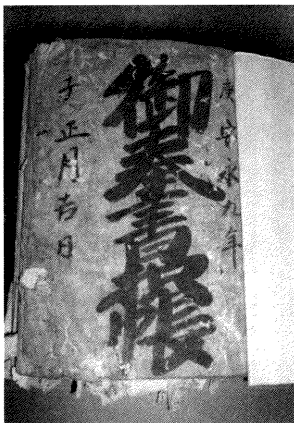 庚安永九年
御奉書帳
子正月吉日